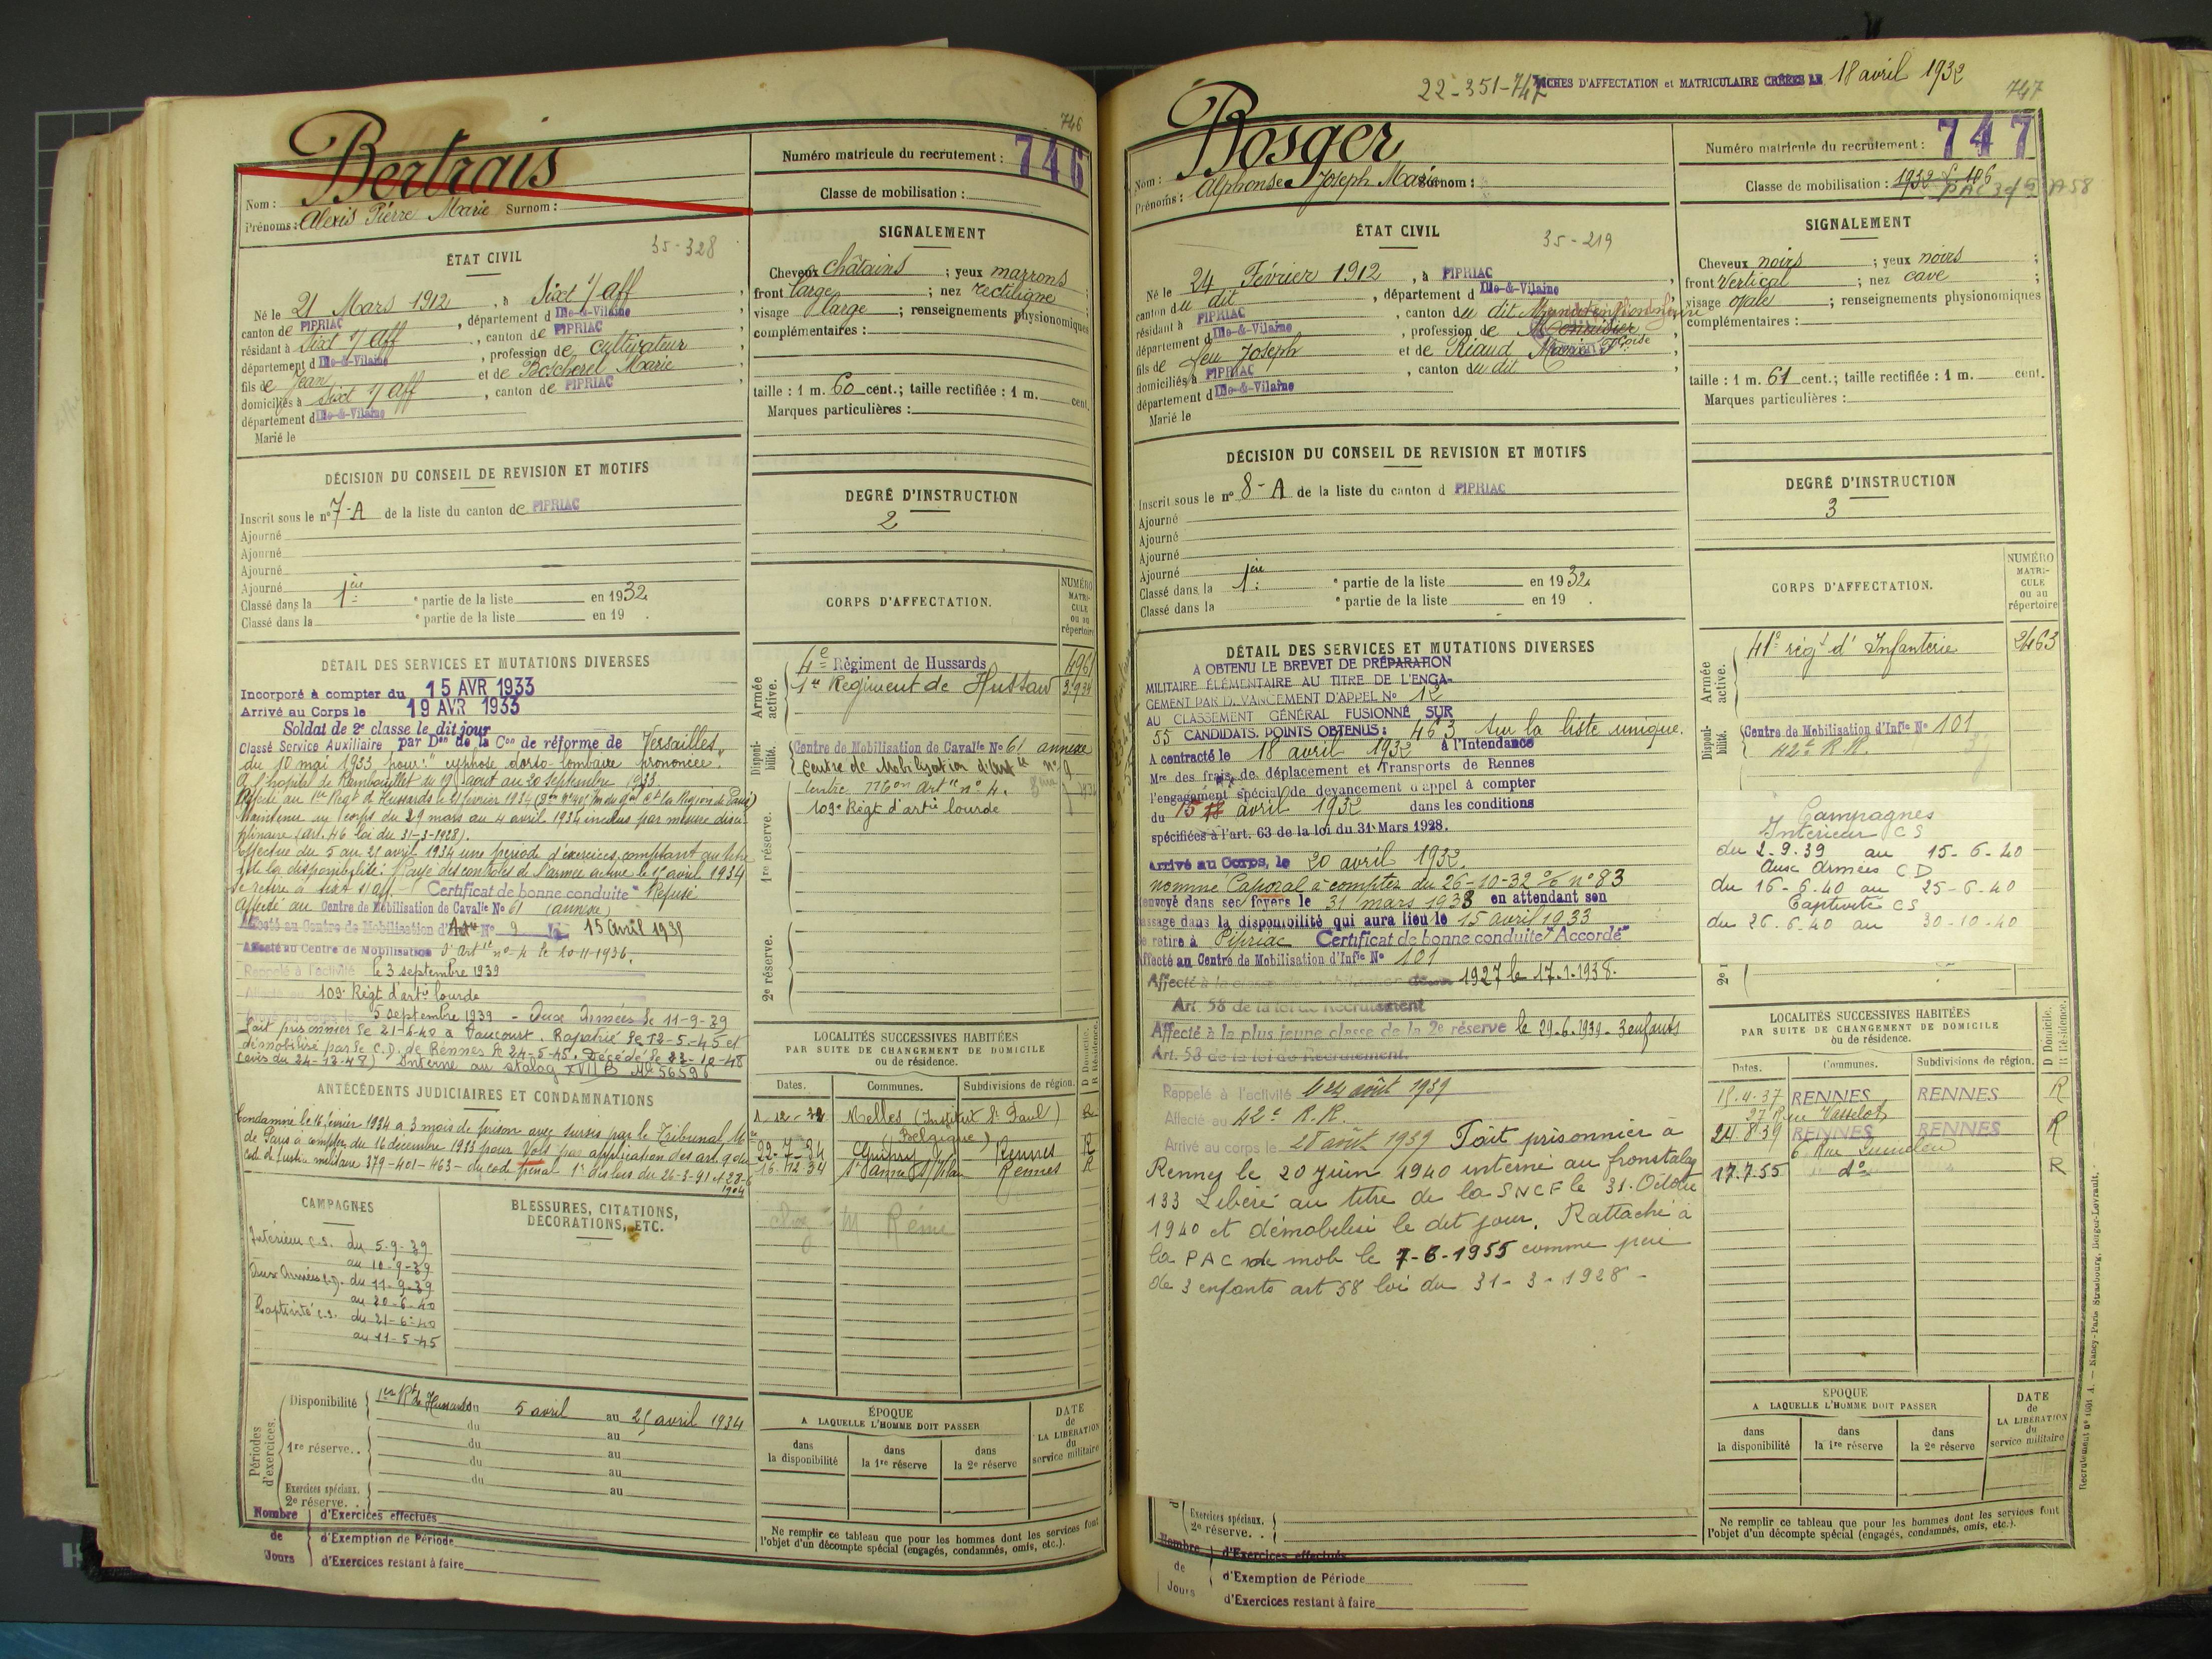 746
Bertrais
Nom :
Prénoms : Alexis Pierre Marie Surnom :
Numéro matricule du recrutement : 746
Classe de mobilisation :
ÉTAT CIVIL
35-328
Né le 21 Mars 1912, à Sixt s/ aff,
canton de PIPRIAC, département d Ille-&-Vilaine
résidant à Sixt s/ aff, canton de PIPRIAC
département d Ille-&-Vilaine, profession de cultivateur
fils de Jean et de Boscherel Marie
domiciliés à Sixt s/ aff, canton de PIPRIAC
département d Ille-&-Vilaine
Marié le
SIGNALEMENT
Cheveux châtains ; yeux marrons ;
front large ; nez rectiligne ;
visage large ; renseignements physionomiques
complémentaires :
taille : 1 m. 60 cent.; taille rectifiée : 1 m. cent.
Marques particulières :
DÉCISION DU CONSEIL DE REVISION ET MOTIFS
Inscrit sous le n° 7-A de la liste du canton de PIPRIAC
Ajourné
Ajourné
Ajourné
Ajourné
Classé dans la 1ère partie de la liste en 1932
Classé dans la e partie de la liste en 19 .
DEGRÉ D'INSTRUCTION
2
CORPS D'AFFECTATION.
NUMÉRO MATRICULE ou au répertoire
Armée active.
4e Régiment de Hussards 4961
1er Régiment de Hussards 3.934
Disponibilité.
Centre de Mobilisation de Cavalie No 61 annexe
Centre de Mobilisation d'Artie n° 9
Centre Mon Artie n° 4.
109e Régt d'artie lourde
1re réserve.
2e réserve.
DÉTAIL DES SERVICES ET MUTATIONS DIVERSES
Incorporé à compter du 15 AVR 1933
Arrivé au Corps le 19 AVR 1933
Soldat de 2e classe le dit jour
Classé Service Auxiliaire par Don de la Con de réforme de Versailles
du 10 mai 1933 pour: "cyphose dorso-lombaire prononcée."
A l'hôpital de Rambouillet du 19 août au 20 septembre 1933
Affecté au 1er Régt de Hussards le 21 février 1934
Maintenu au corps du 29 mars au 4 avril 1934 inclus par mesure disci-
plinaire (art. 46 loi du 31-3-1928).
Effectue du 5 au 21 avril 1934 une période d'exercices comptant au titre
de la disponibilité. Rayé des contrôles de l'armée active le 17 avril 1934
Se retire à Sixt s/ aff Certificat de bonne conduite "Refusé"
Affecté au Centre de Mobilisation de Cavalie No 61 (annexe)
Affecté au Centre de Mobilisation d'Artie No 9 le 15 avril 1935
Affecté au Centre de Mobilisation d'artie n° 4 le 10-11-1936.
Rappelé à l'activité le 3 septembre 1939
Affecté au 109e Régt d'artie lourde
Arrivé au corps le 5 septembre 1939 - Aux Armées le 11-9-39
Fait prisonnier le 21-6-40 à Vaucourt. Rapatrié le 12-5-45 et
démobilisé par le C.D. de Rennes le 24-5-45. Décédé le 22-10-48
(avis du 24-12-48) Interné au stalag XVII B Mle 56596
LOCALITÉS SUCCESSIVES HABITÉES
PAR SUITE DE CHANGEMENT DE DOMICILE
ou de résidence.
D Domicile. R Résidence.
Dates. Communes. Subdivisions de région.
1-12-32 Melles (Institut St Paul) R
(Belgique)
22-7-34 Guipry Rennes R
16-12-34 Rennes R
chez M Rémi
ANTÉCÉDENTS JUDICIAIRES ET CONDAMNATIONS
Condamné le 16 février 1934 à 3 mois de prison avec sursis par le Tribunal Mre
de Paris à compter du 16 décembre 1933 pour Vols par application des art. 9 du
Code de Justice militaire 379-401-463 - du code pénal - 1er des lois du 26-3-91 et 28-6
1904
CAMPAGNES
Intérieur C.S. du 5-9-39
au 10-9-39
Aux Armées C.D. du 11-9-39
au 20-6-40
Captivité C.S. du 21-6-40
au 11-5-45
BLESSURES, CITATIONS,
DÉCORATIONS, ETC.
Périodes d'exercices.
Disponibilité 1er Rt de Hussards du 5 avril au 21 avril 1934
du au
1re réserve.. du au
du au
du au
Exercices spéciaux.
2e réserve. .
Nombre de Jours
d'Exercices effectués
d'Exemption de Période
d'Exercices restant à faire
ÉPOQUE
A LAQUELLE L'HOMME DOIT PASSER
dans la disponibilité
dans la 1re réserve
dans la 2e réserve
DATE de LA LIBÉRATION du service militaire
Ne remplir ce tableau que pour les hommes dont les services font
l'objet d'un décompte spécial (engagés, condamnés, omis, etc.).
22-351-747 FICHES D'AFFECTATION et MATRICULAIRE CRÉÉES LE 18 avril 1932
747
Bosger
Nom :
Prénoms : Alphonse Joseph Marie Surnom :
Numéro matricule du recrutement : 747
Classe de mobilisation : 1932
A58
ÉTAT CIVIL
35-219
Né le 24 Février 1912, à PIPRIAC,
canton du dit, département d Ille-&-Vilaine
résidant à PIPRIAC, canton du dit
département d Ille-&-Vilaine, profession de Menuisier
fils de feu Joseph et de Riaud Marie Fçoise
domiciliés à PIPRIAC, canton du dit
département d Ille-&-Vilaine
Marié le
SIGNALEMENT
Cheveux noirs ; yeux noirs ;
front Vertical ; nez cave ;
visage ovale ; renseignements physionomiques
complémentaires :
taille : 1 m. 61 cent.; taille rectifiée : 1 m. cent.
Marques particulières :
DÉCISION DU CONSEIL DE REVISION ET MOTIFS
Inscrit sous le n° 8-A de la liste du canton d PIPRIAC
Ajourné
Ajourné
Ajourné
Ajourné
Classé dans la 1ère partie de la liste en 1932
Classé dans la e partie de la liste en 19 .
DEGRÉ D'INSTRUCTION
3
CORPS D'AFFECTATION.
NUMÉRO MATRICULE ou au répertoire
Armée active.
41e régt d'Infanterie 2463
Disponibilité.
Centre de Mobilisation d'Infie No 101
42e R.R.
Campagnes
Intérieur CS
du 2-9-39 au 15-6-40
Aux Armées C.D
du 16-6-40 au 25-6-40
Captivité CS
du 26.6.40 au 30-10-40
DÉTAIL DES SERVICES ET MUTATIONS DIVERSES
A OBTENU LE BREVET DE PRÉPARATION
MILITAIRE ÉLÉMENTAIRE AU TITRE DE L'ENGA-
GEMENT PAR DEVANCEMENT D'APPEL No 12
AU CLASSEMENT GÉNÉRAL FUSIONNÉ SUR
55 CANDIDATS. POINTS OBTENUS : 463 sur la liste unique.
A contracté le 18 avril 1932 à l'Intendance
Mre des frais de déplacement et Transports de Rennes
l'engagement spécial de devancement d'appel à compter
du 15 avril 1932 dans les conditions
spécifiées à l'art. 63 de la loi du 31 Mars 1928.
Arrivé au Corps, le 20 avril 1932.
nommé Caporal à compter du 26-10-32 o/c n° 83
Renvoyé dans ses foyers le 31 mars 1933 en attendant son
passage dans la disponibilité qui aura lieu le 15 avril 1933
Se retire à Pipriac Certificat de bonne conduite "Accordé"
Affecté au Centre de Mobilisation d'Infie No 101
Affecté à la classe de mobilisation de 1927 le 17.1.1938.
Art. 58 de la loi de Recrutement
Affecté à la plus jeune classe de la 2e réserve le 29.6.1939 - 3 enfants
Art. 58 de la loi de Recrutement.
Rappelé à l'activité le 24 août 1939
Affecté au 42e R.R.
Arrivé au corps le 28 août 1939 Fait prisonnier à
Rennes le 20 Juin 1940 interné au fronstalag
133 Libéré au titre de la SNCF le 31. Octobre
1940 et démobilisé le dit jour. Rattaché à
la PAC de mob le 7-6-1955 comme père
de 3 enfants art 58 loi du 31-3-1928-
2e
LOCALITÉS SUCCESSIVES HABITÉES
PAR SUITE DE CHANGEMENT DE DOMICILE
ou de résidence.
D Domicile. R Résidence.
Dates. Communes. Subdivisions de région.
19.4.37 RENNES RENNES R
27 Rue Vasselot
24.8.39 RENNES RENNES R
6 Rue
17.7.55 d° R
ÉPOQUE
A LAQUELLE L'HOMME DOIT PASSER
dans la disponibilité
dans la 1re réserve
dans la 2e réserve
DATE de LA LIBÉRATION du service militaire
Exercices spéciaux.
2e réserve. .
Ne remplir ce tableau que pour les hommes dont les services font
l'objet d'un décompte spécial (engagés, condamnés, omis, etc.).
Nombre de Jours
d'Exercices effectués
d'Exemption de Période
d'Exercices restant à faire
Recrutement n° 1091 A. — Nancy-Paris-Strasbourg, Berger-Levrault.